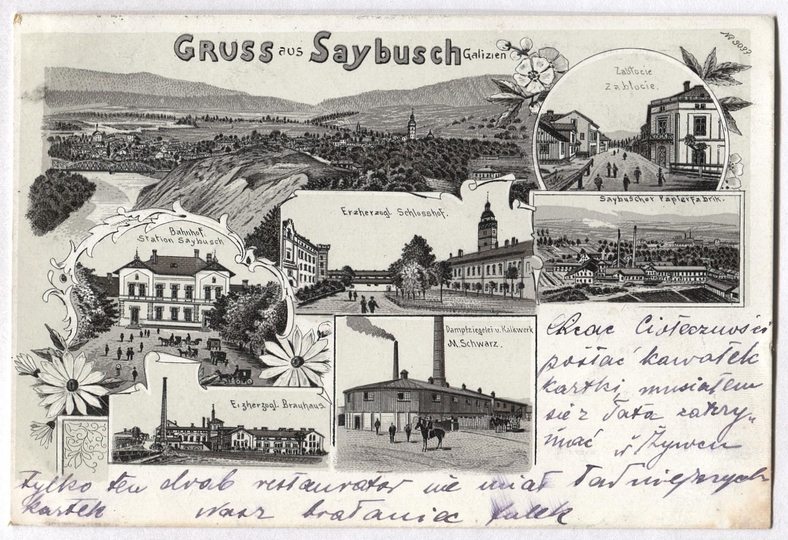 GRUSS aus Saybusch Galizien
№ 3097.
Zabłocie
Zablocie.
Saybuscher Papierfabrik.
Erzherzogl. Schlosshof.
Bahnhof.
Station Saybusch
Dampfziegelei u. Kalkwerk
M. Schwarz.
Erzherzogl. Brauhaus.
Chcąc Cioteczności
posłać kawałek
kartki musiałem
się z Tatą zatrzy„
mać w Żywcu
tylko ten drab restaurator nie miał ładniejszych
kartek Wasz bratanic Tulek